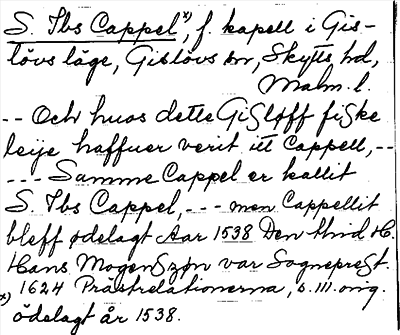 S. Ibs Cappel,x) f. kapell i Gis-
lövs läge, Gislövs sn, Skytts hd,
Malm. l.
-- Och huos dette Gisløff fiske
leije haffuer verit itt Cappell, --
--- Samme Cappel er kallit
S. Ibs Cappel, --- men Cappellit
bleff ødelagt Aar 1538 Den thid H.
Hans Mogenszøn var Sogneprest.
1624 Prästrelationerna, s. 111. orig.
x) ödelagt år 1538.